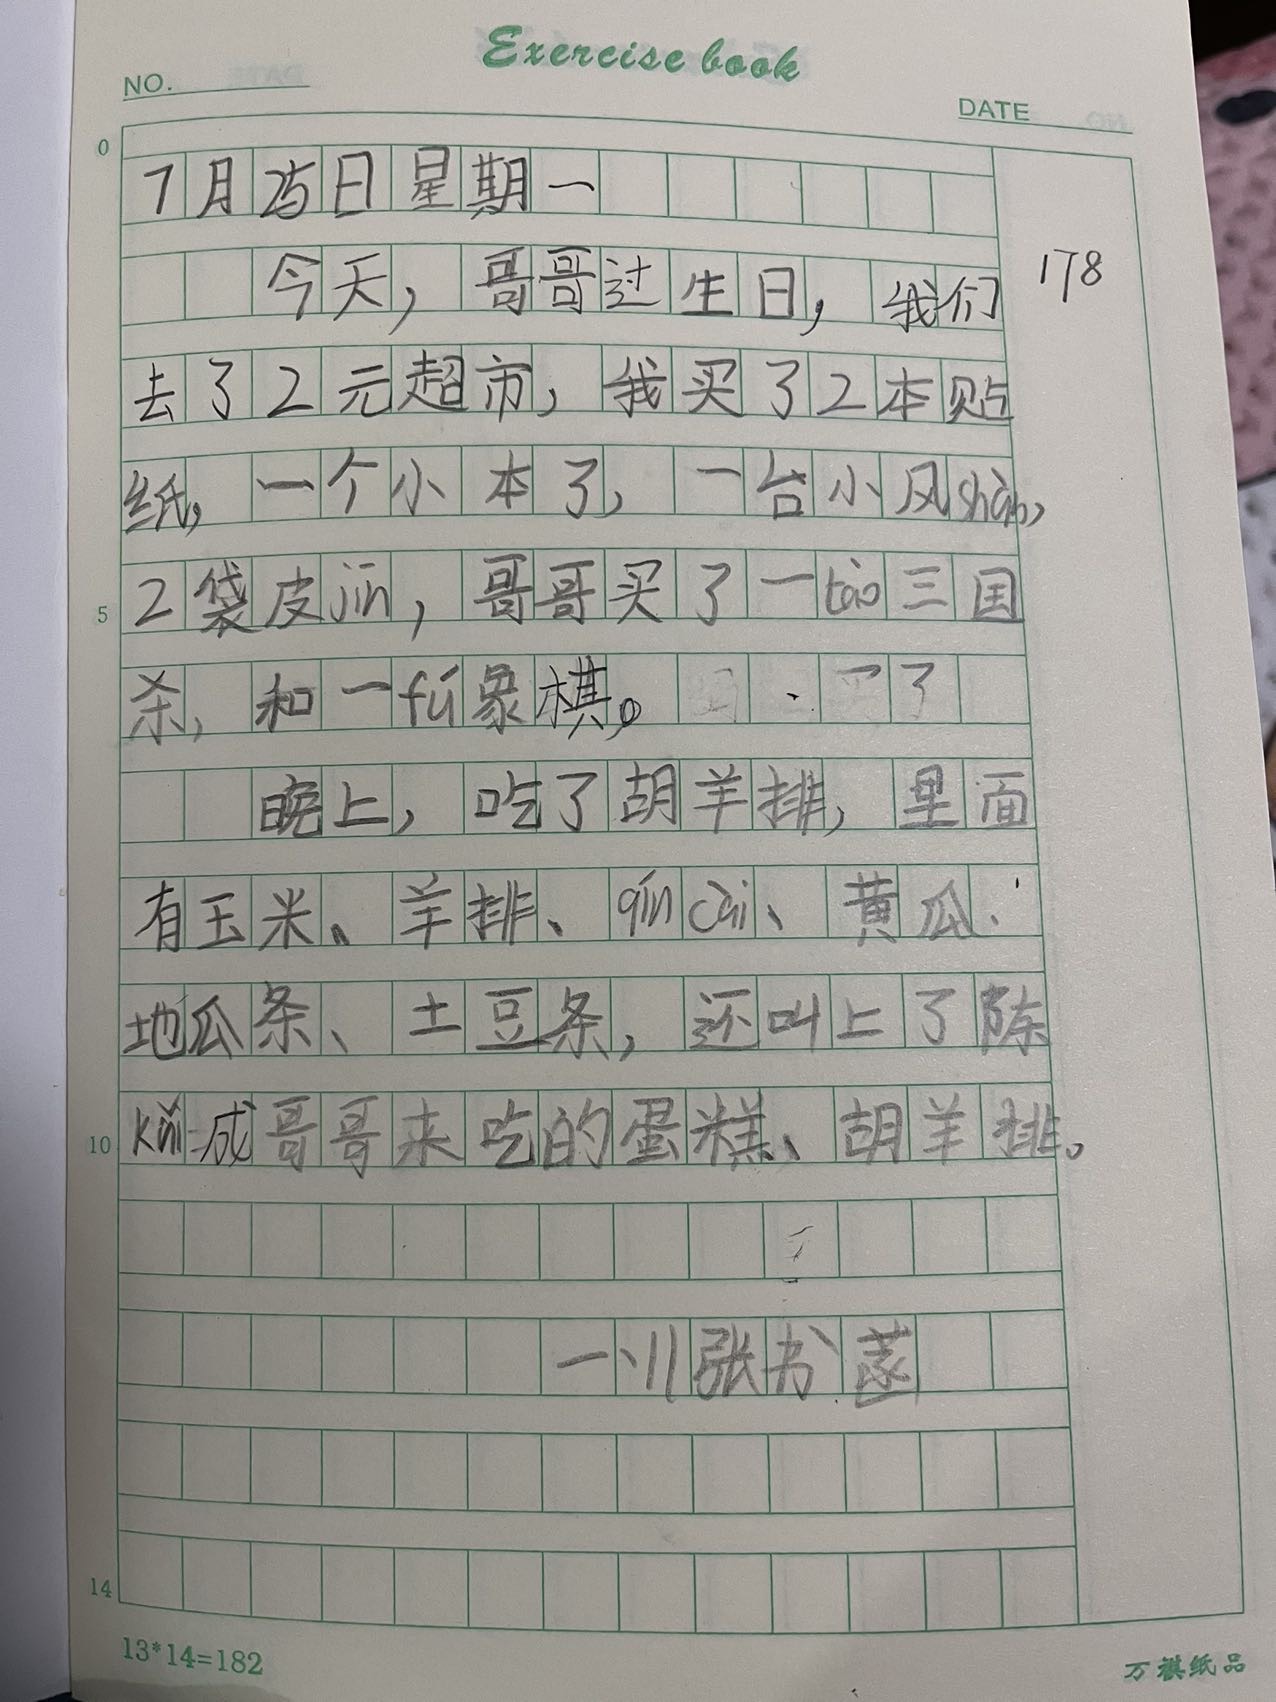 Exercise book
NO.
DATE
0
7月25日星期一
今天，哥哥过生日，我们
178
去了2元超市，我买了2本贴
纸，一个小本了，一台小风shàn，
5
2袋皮jīn，哥哥买了一tào三国
杀，和一fú象棋。
晚上，吃了胡羊排，里面
有玉米、羊排、qín cài、黄瓜、
地瓜条、土豆条，还叫上了陈
10
kǎi成哥哥来吃的蛋糕、胡羊排。
张书菡
14
13*14=182
万祺纸品